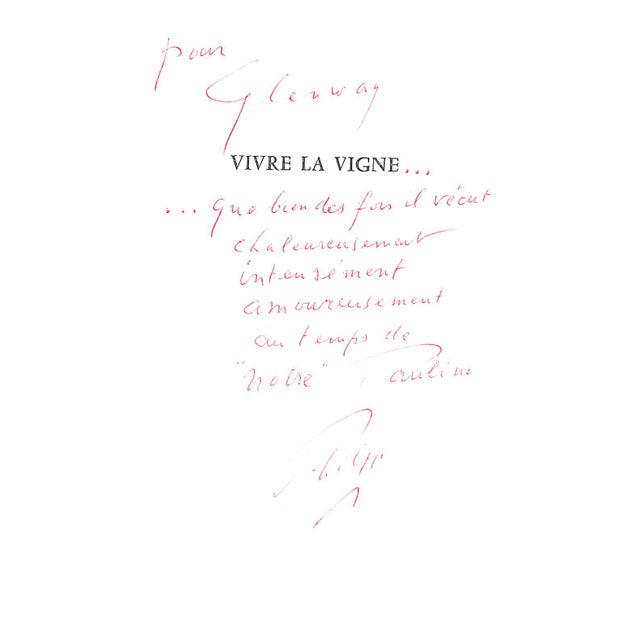 pour
Glenway
VIVRE LA VIGNE...
... que bien des fois il vécut
chaleureusement
intensément
amoureusement
au temps de
"notre" Pauline
Philipp